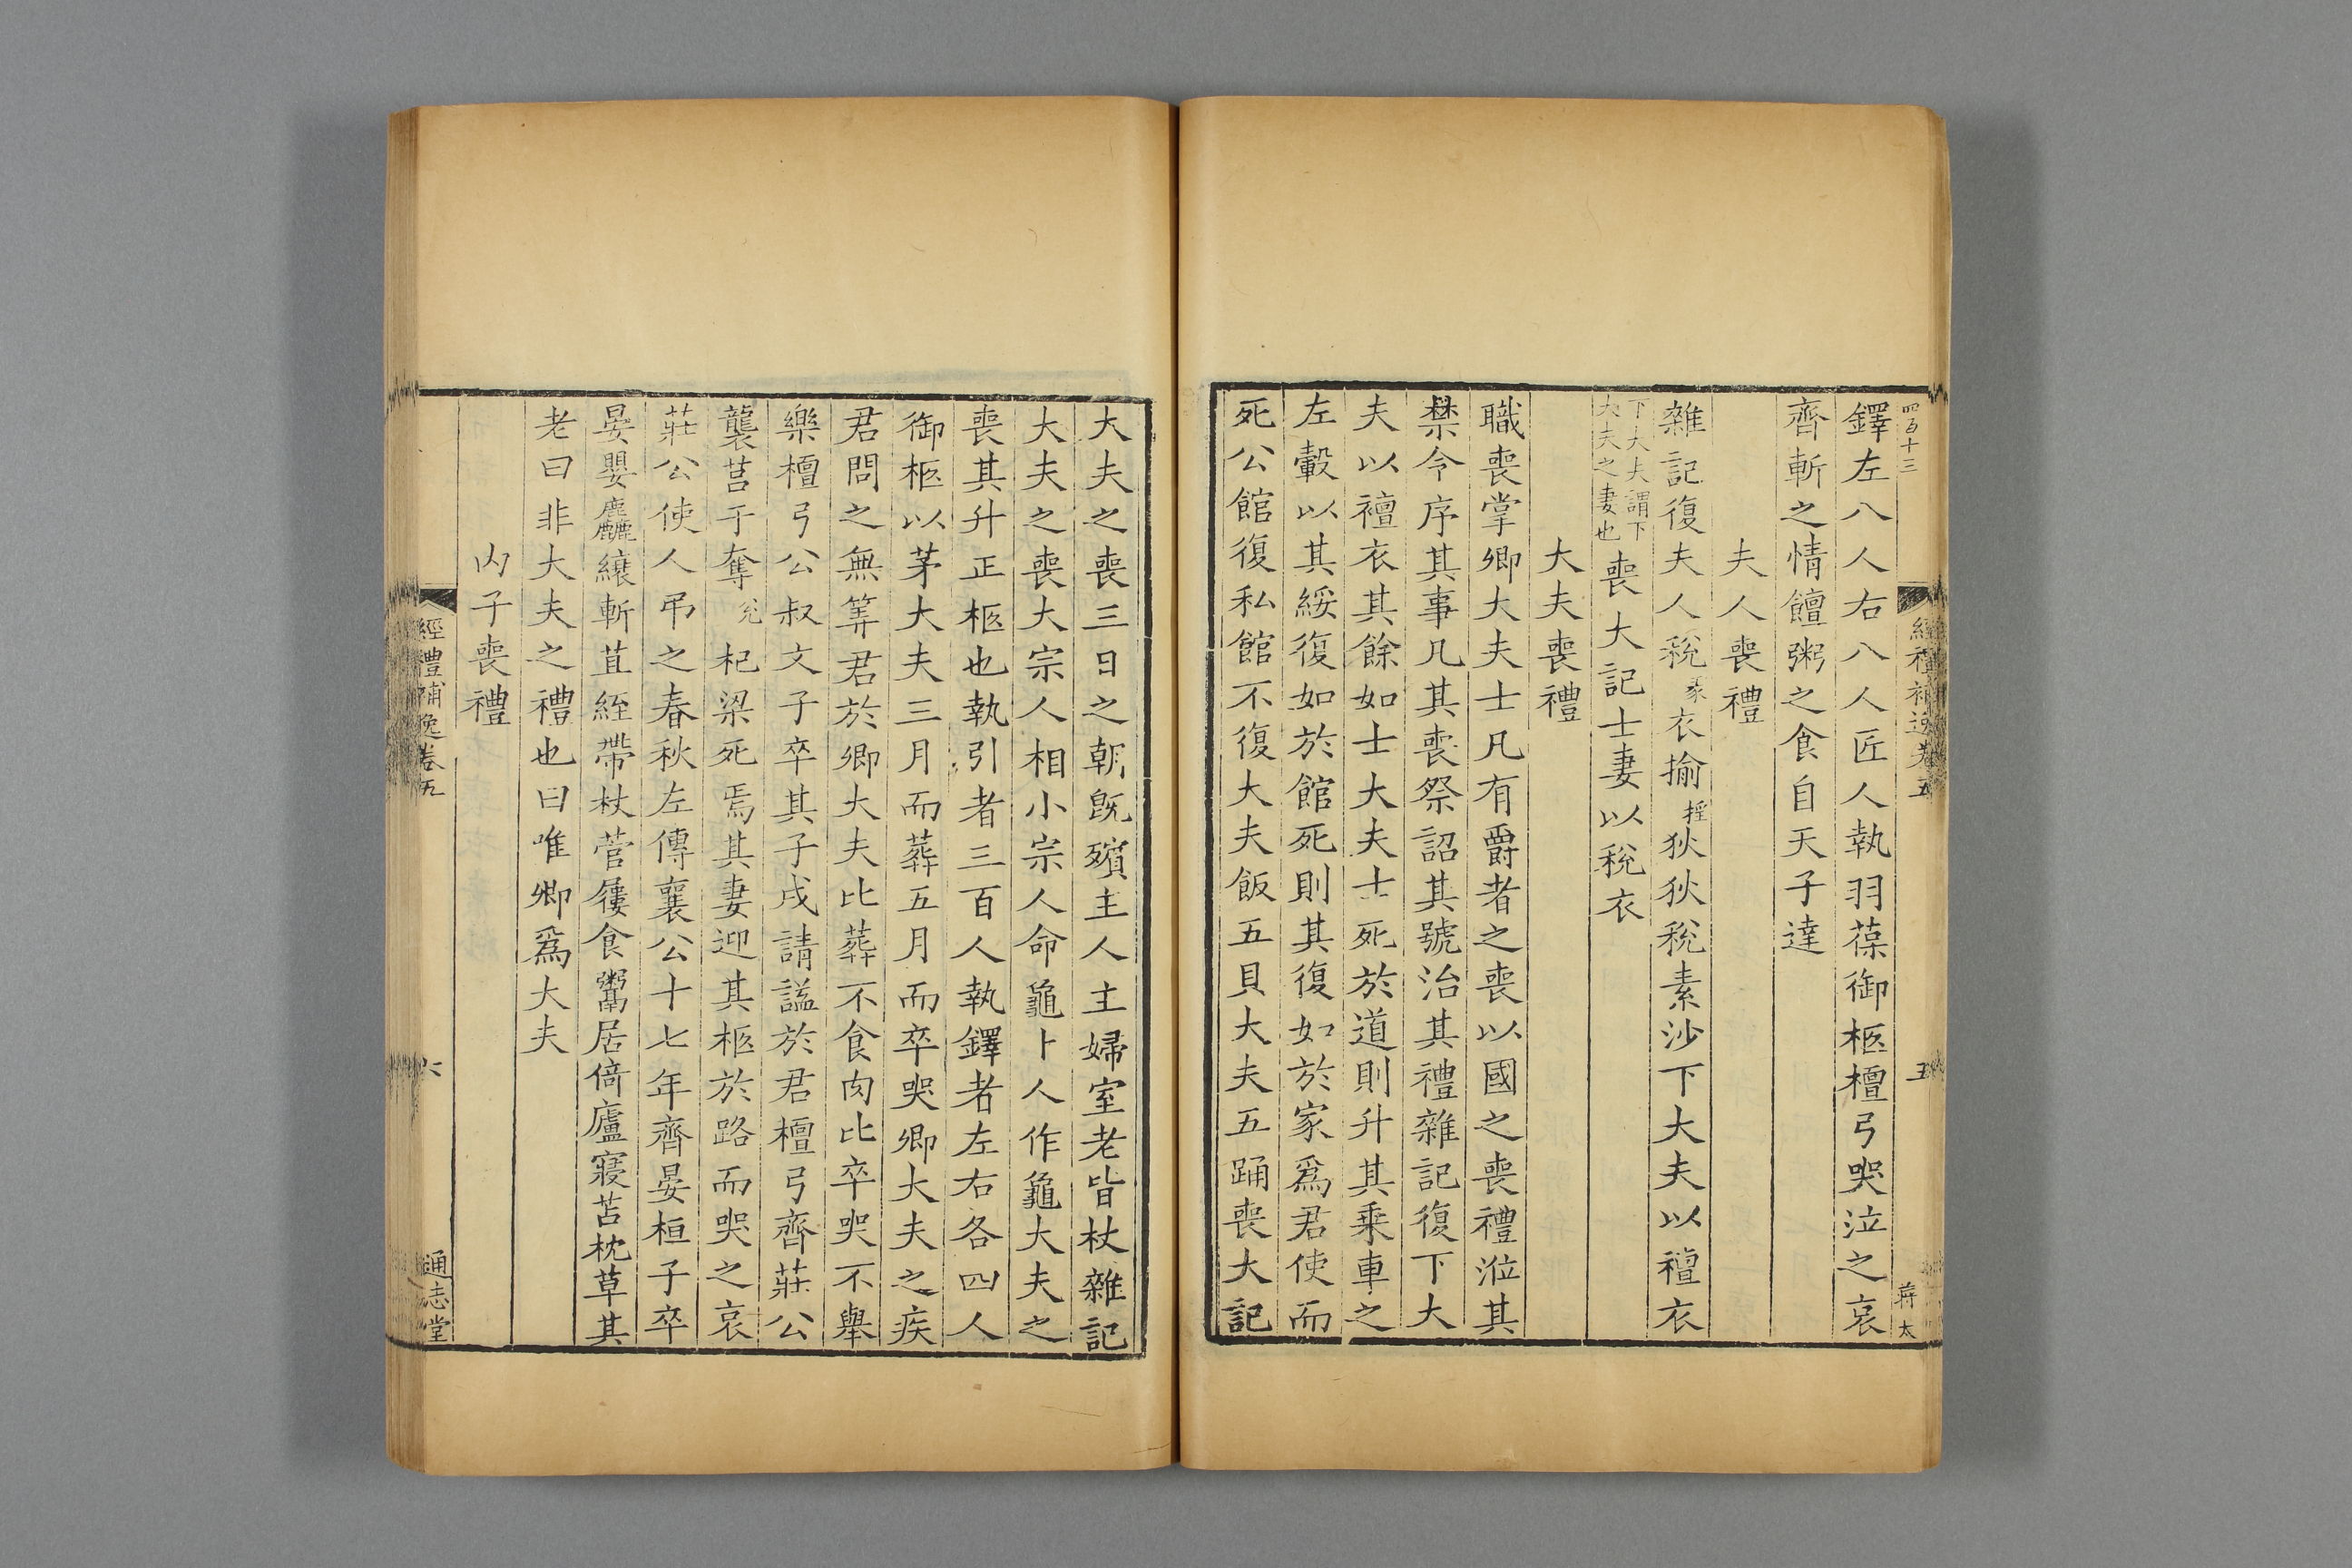 四百十三
經禮補逸卷五
五
蔣太
鐸左八人右八人匠人執羽葆御柩檀弓哭泣之哀
齊斬之情饘粥之食自天子達
夫人喪禮
雜記復夫人稅彖衣揄搖狄狄稅素沙下大夫以襢衣
下大夫謂下
大夫之妻也
喪大記士妻以稅衣
大夫喪禮
職喪掌卿大夫士凡有爵者之喪以國之喪禮涖其
禁令序其事凡其喪祭詔其號治其禮雜記復下大
夫以襢衣其餘如士大夫士死於道則升其乘車之
左轂以其綏復如於館死則其復如於家爲君使而
死公館復私館不復大夫飯五貝大夫五踊喪大記
大夫之喪三日之朝旣殯主人主婦室老皆杖雜記
大夫之喪大宗人相小宗人命龜卜人作龜大夫之
喪其升正柩也執引者三百人執鐸者左右各四人
御柩以茅大夫三月而葬五月而卒哭卿大夫之疾
君問之無筭君於卿大夫比葬不食肉比卒哭不舉
樂檀弓公叔文子卒其子戌請謚於君檀弓齊莊公
襲莒于奪兊杞梁死焉其妻迎其柩於路而哭之哀
莊公使人弔之春秋左傳襄公十七年齊晏桓子卒
晏嬰麤縗斬苴絰帶杖菅屨食鬻居倚廬寢苫枕草其
老曰非大夫之禮也曰唯卿爲大夫
内子喪禮
經禮補逸卷五
六
通志堂